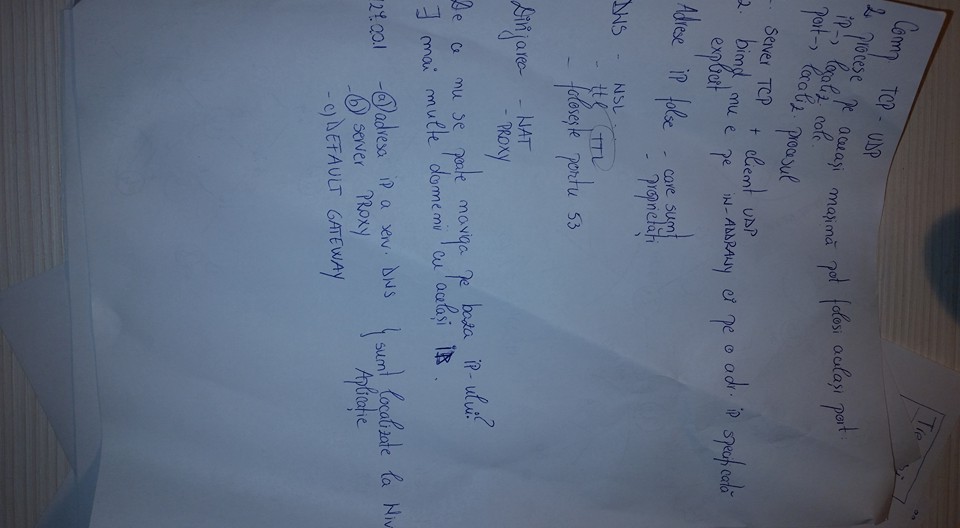 Tip
Comp TCP - UDP
2 procese pe aceeași mașină pot folosi același port.
iP -> localiz. calc.
port -> localiz. procesul
server TCP + client UDP
2. bind nu e pe iN-ADDRANY ci pe o adr. iP specificată
explicit
Adrese iP false - care sunt
- proprietăți
DNS - NSL
- ttl TTL
- folosește portu 53
Dirijarea - NAT
- PROXY
De ce nu se poate naviga pe baza iP-ului?
∃ mai multe domenii cu același
127.0.0.1 - a) adresa iP a serv. DNS } sunt localizate la Niv
- b) server PROXY Aplicație
- c) DEFAULT GATEWAY